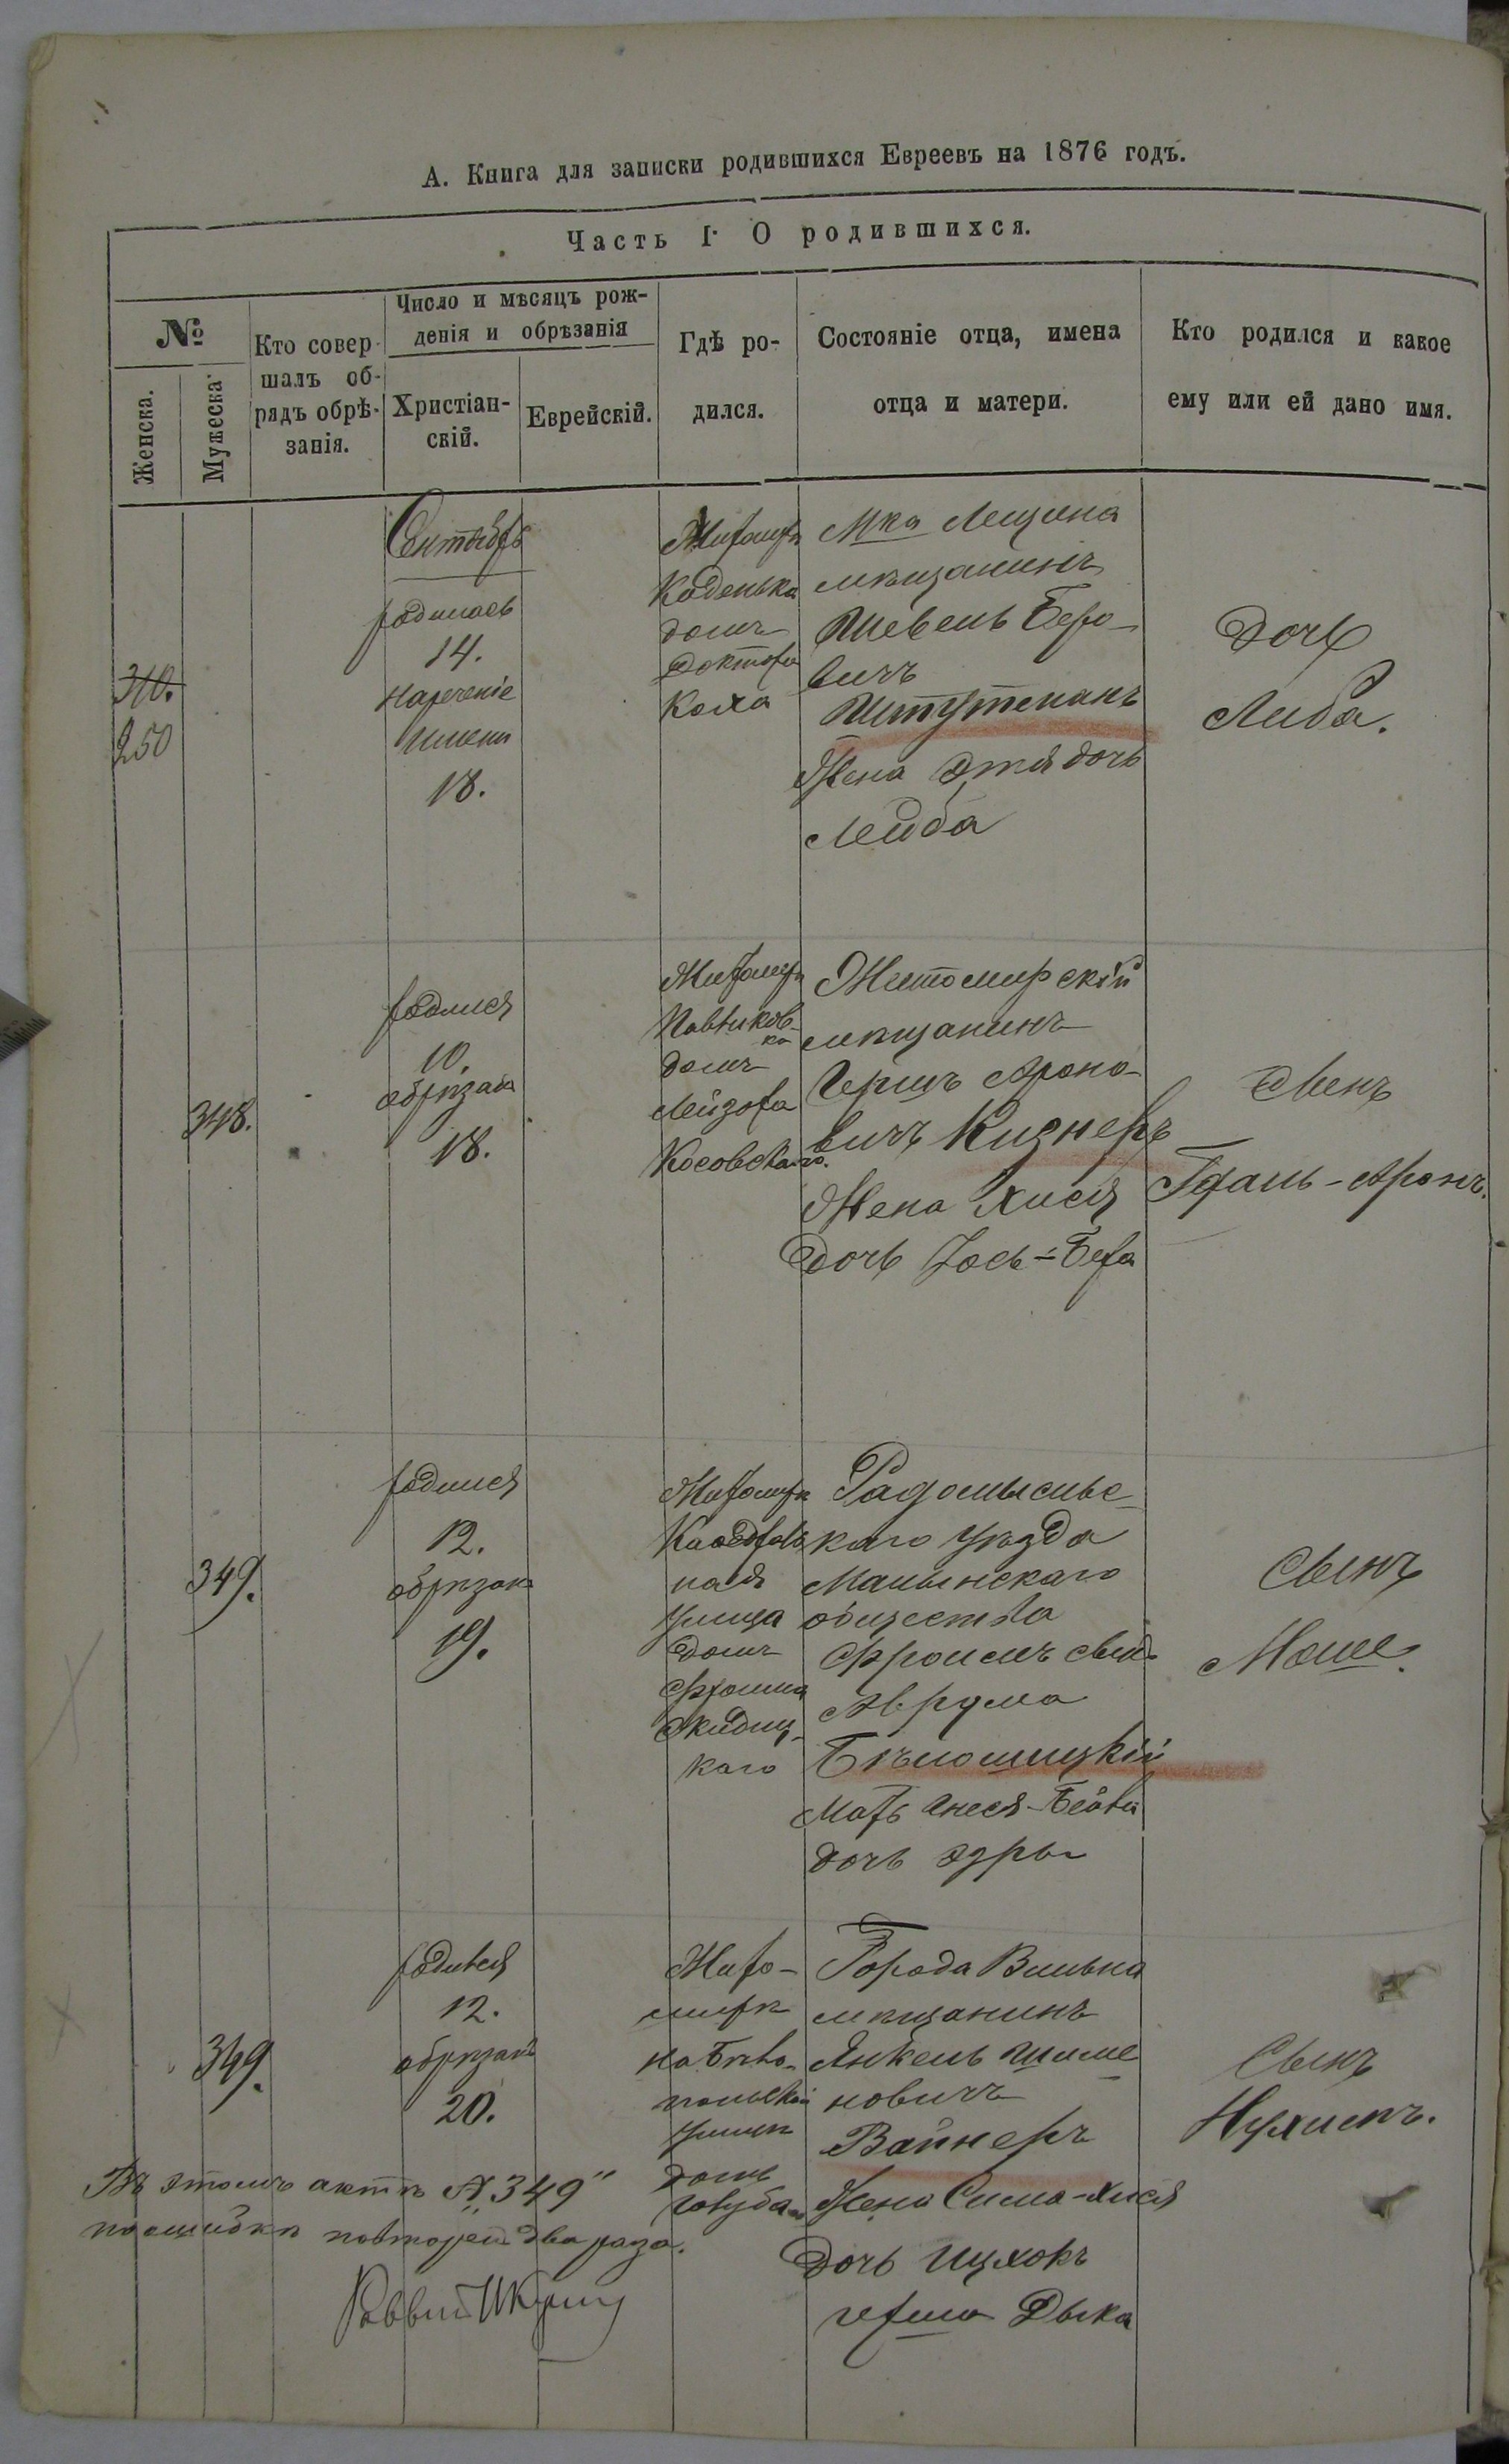 А. Книга для записки родившихся Евреевъ на 1876 годъ.
Часть I. О родившихся.
№
Женска.
Мужеска.
Кто совер-
шалъ об-
рядъ обрѣ-
занія.
Число и мѣсяцъ рож-
денія и обрѣзанія
Христіан-
скій.
Еврейскій.
Гдѣ ро-
дился.
Состояніе отца, имена
отца и матери.
Кто родился и какое
ему или ей дано имя.
310.
250
Сентябрь
родилась
14.
нареченіе
имени
18.
Житомиръ
домъ
Доктора
Коха
Мка Лещина
мѣщанинъ
Шевель Беро-
вичъ
Штутманъ
Жена Этя дочь
Лейба
Дочь
Либа.
348.
родился
10.
обрѣзанъ
18.
Житомиръ
домъ
Лейзора
Косовскаго.
Житомирскій
мѣщанинъ
Гершъ Ароно-
вичъ Кизнеръ
Жена Хися
дочь Іось-Бера
Сынъ
Гдаль-Аронъ.
349.
родился
12.
обрѣзанъ
19.
Житомиръ
ная
улица
домъ
Фроима
каго
Радомысльс-
каго уѣзда
Малинскаго
общества
Фроимъ сынъ
Аврума
Бѣлошицкій
Мать
дочь Эзры
Сынъ
Моше.
349.
родился
12.
обрѣзанъ
20.
Жито-
мирѣ
на Бѣло-
польской
улицѣ
домъ
Города Вильна
мѣщанинъ
Янкель Шиме
новичъ
Вайнеръ
Жена Сима-Хися
Дочь Ицхокъ
герша Дыка
Сынъ
Нухимъ.
Въ этомъ актѣ № 349"
по ошибкѣ повторенъ два раза.
Раввинъ